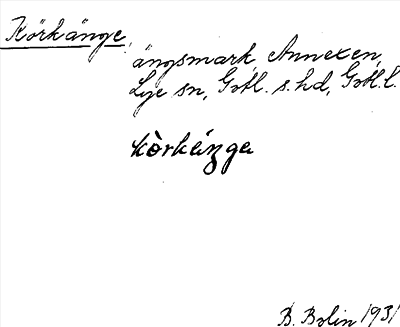 Körkänge,
ängsmark, Annexen,
Lye sn, Gotl. s. hd, Gotl. l.
kòrkäŋgɐ
B. Bolin 1931